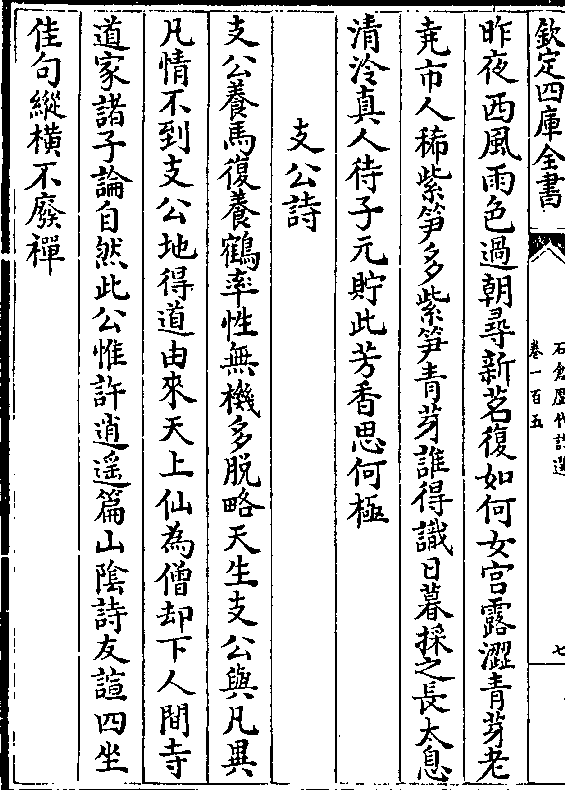 欽定四庫全書
石倉歷代詩選
卷一百五
七
昨夜西風雨色過朝尋新茗復如何女宫露澀青芽老
堯市人稀紫笋多紫笋青芽誰得識日暮採之長太息
清泠真人待子元貯此芳香思何極
支公詩
支公養馬復養鶴率性無機多脱略天生支公與凡異
凡情不到支公地得道由來天上仙為僧却下人間寺
道家諸子論自然此公惟許逍遥篇山陰詩友諠四坐
佳句縱横不廢禪